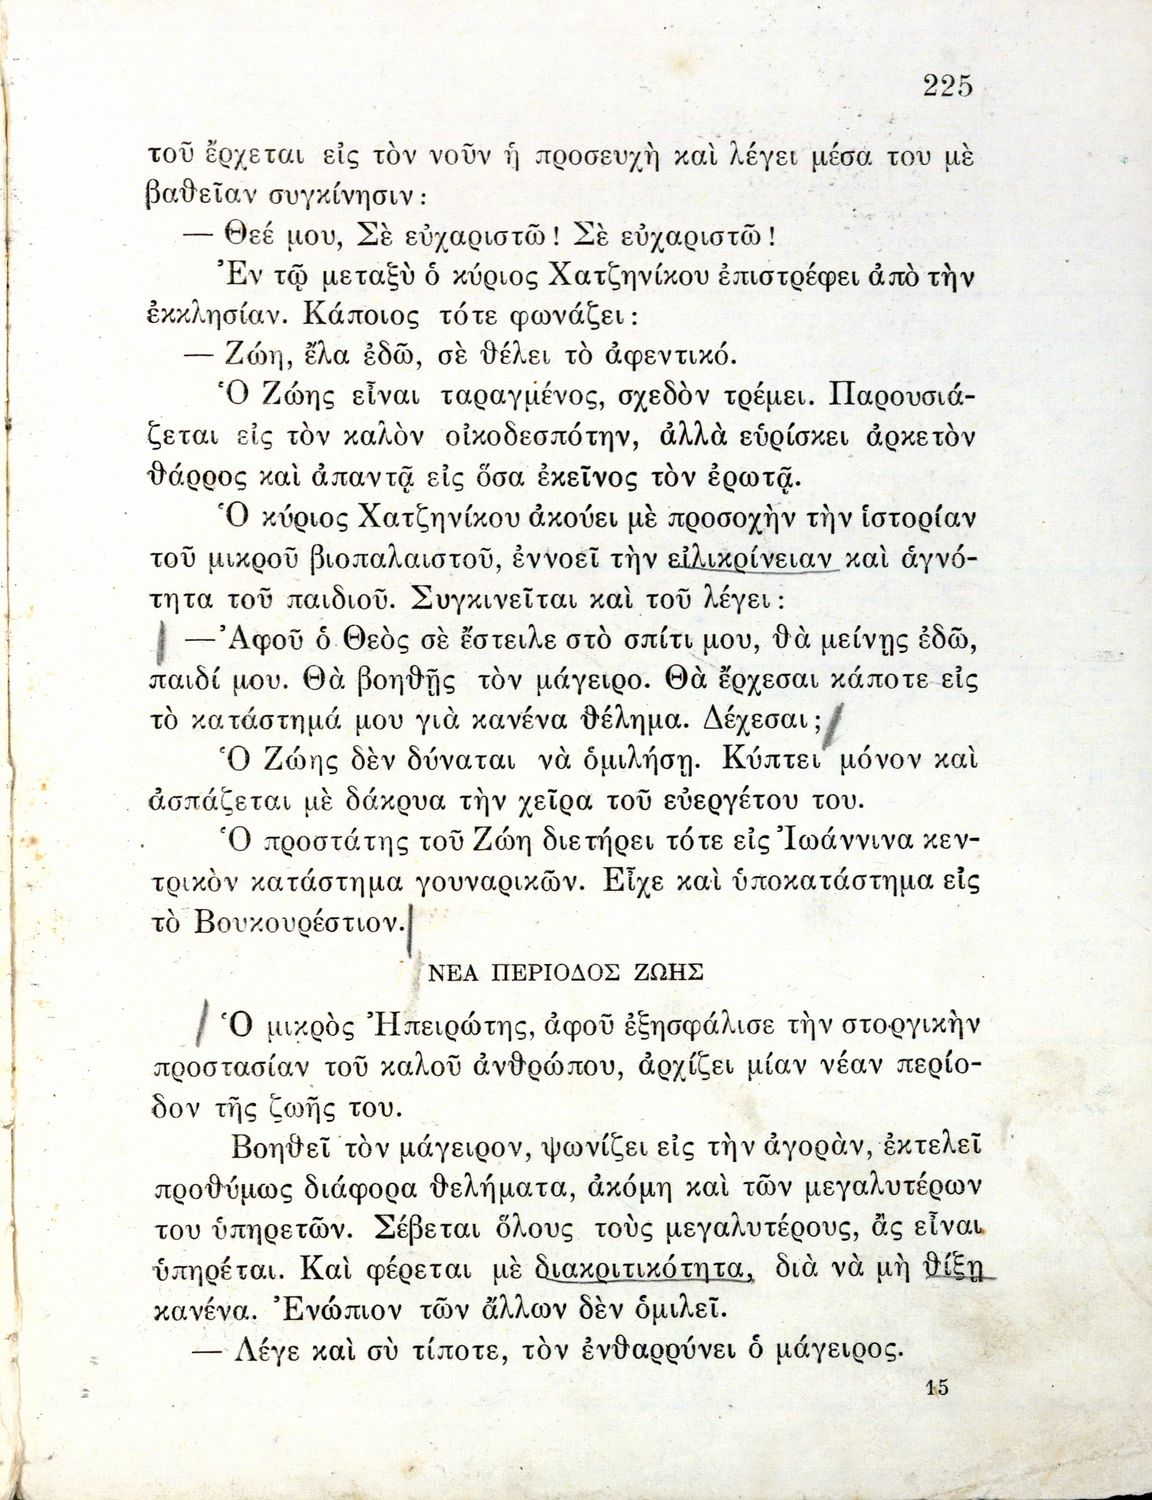 225
τοῦ ἔρχεται εἰς τὸν νοῦν ἡ προσευχὴ καὶ λέγει μέσα του μὲ
βαθεῖαν συγκίνησιν :
— Θεέ μου, Σὲ εὐχαριστῶ ! Σὲ εὐχαριστῶ !
Ἐν τῷ μεταξὺ ὁ κύριος Χατζηνίκου ἐπιστρέφει ἀπὸ τὴν
ἐκκλησίαν. Κάποιος τότε φωνάζει :
— Ζώη, ἔλα ἐδῶ, σὲ θέλει τὸ ἀφεντικό.
Ὁ Ζώης εἶναι ταραγμένος, σχεδὸν τρέμει. Παρουσιά-
ζεται εἰς τὸν καλὸν οἰκοδεσπότην, ἀλλὰ εὑρίσκει ἀρκετὸν
θάρρος καὶ ἀπαντᾷ εἰς ὅσα ἐκεῖνος τὸν ἐρωτᾷ.
Ὁ κύριος Χατζηνίκου ἀκούει μὲ προσοχὴν τὴν ἱστορίαν
τοῦ μικροῦ βιοπαλαιστοῦ, ἐννοεῖ τὴν εἰλικρίνειαν καὶ ἁγνό-
τητα τοῦ παιδιοῦ. Συγκινεῖται καὶ τοῦ λέγει :
— Ἀφοῦ ὁ Θεὸς σὲ ἔστειλε στὸ σπίτι μου, θὰ μείνῃς ἐδῶ,
παιδί μου. Θὰ βοηθῇς τὸν μάγειρο. Θὰ ἔρχεσαι κάποτε εἰς
τὸ κατάστημά μου γιὰ κανένα θέλημα. Δέχεσαι ;
Ὁ Ζώης δὲν δύναται νὰ ὁμιλήσῃ. Κύπτει μόνον καὶ
ἀσπάζεται μὲ δάκρυα τὴν χεῖρα τοῦ εὐεργέτου του.
Ὁ προστάτης τοῦ Ζώη διετήρει τότε εἰς Ἰωάννινα κεν-
τρικὸν κατάστημα γουναρικῶν. Εἶχε καὶ ὑποκατάστημα εἰς
τὸ Βουκουρέστιον.
ΝΕΑ ΠΕΡΙΟΔΟΣ ΖΩΗΣ
Ὁ μικρὸς Ἠπειρώτης, ἀφοῦ ἐξησφάλισε τὴν στοργικὴν
προστασίαν τοῦ καλοῦ ἀνθρώπου, ἀρχίζει μίαν νέαν περίο-
δον τῆς ζωῆς του.
Βοηθεῖ τὸν μάγειρον, ψωνίζει εἰς τὴν ἀγοράν, ἐκτελεῖ
προθύμως διάφορα θελήματα, ἀκόμη καὶ τῶν μεγαλυτέρων
του ὑπηρετῶν. Σέβεται ὅλους τοὺς μεγαλυτέρους, ἂς εἶναι
ὑπηρέται. Καὶ φέρεται μὲ διακριτικότητα, διὰ νὰ μὴ θίξῃ
κανένα. Ἐνώπιον τῶν ἄλλων δὲν ὁμιλεῖ.
— Λέγε καὶ σὺ τίποτε, τὸν ἐνθαρρύνει ὁ μάγειρος.
15